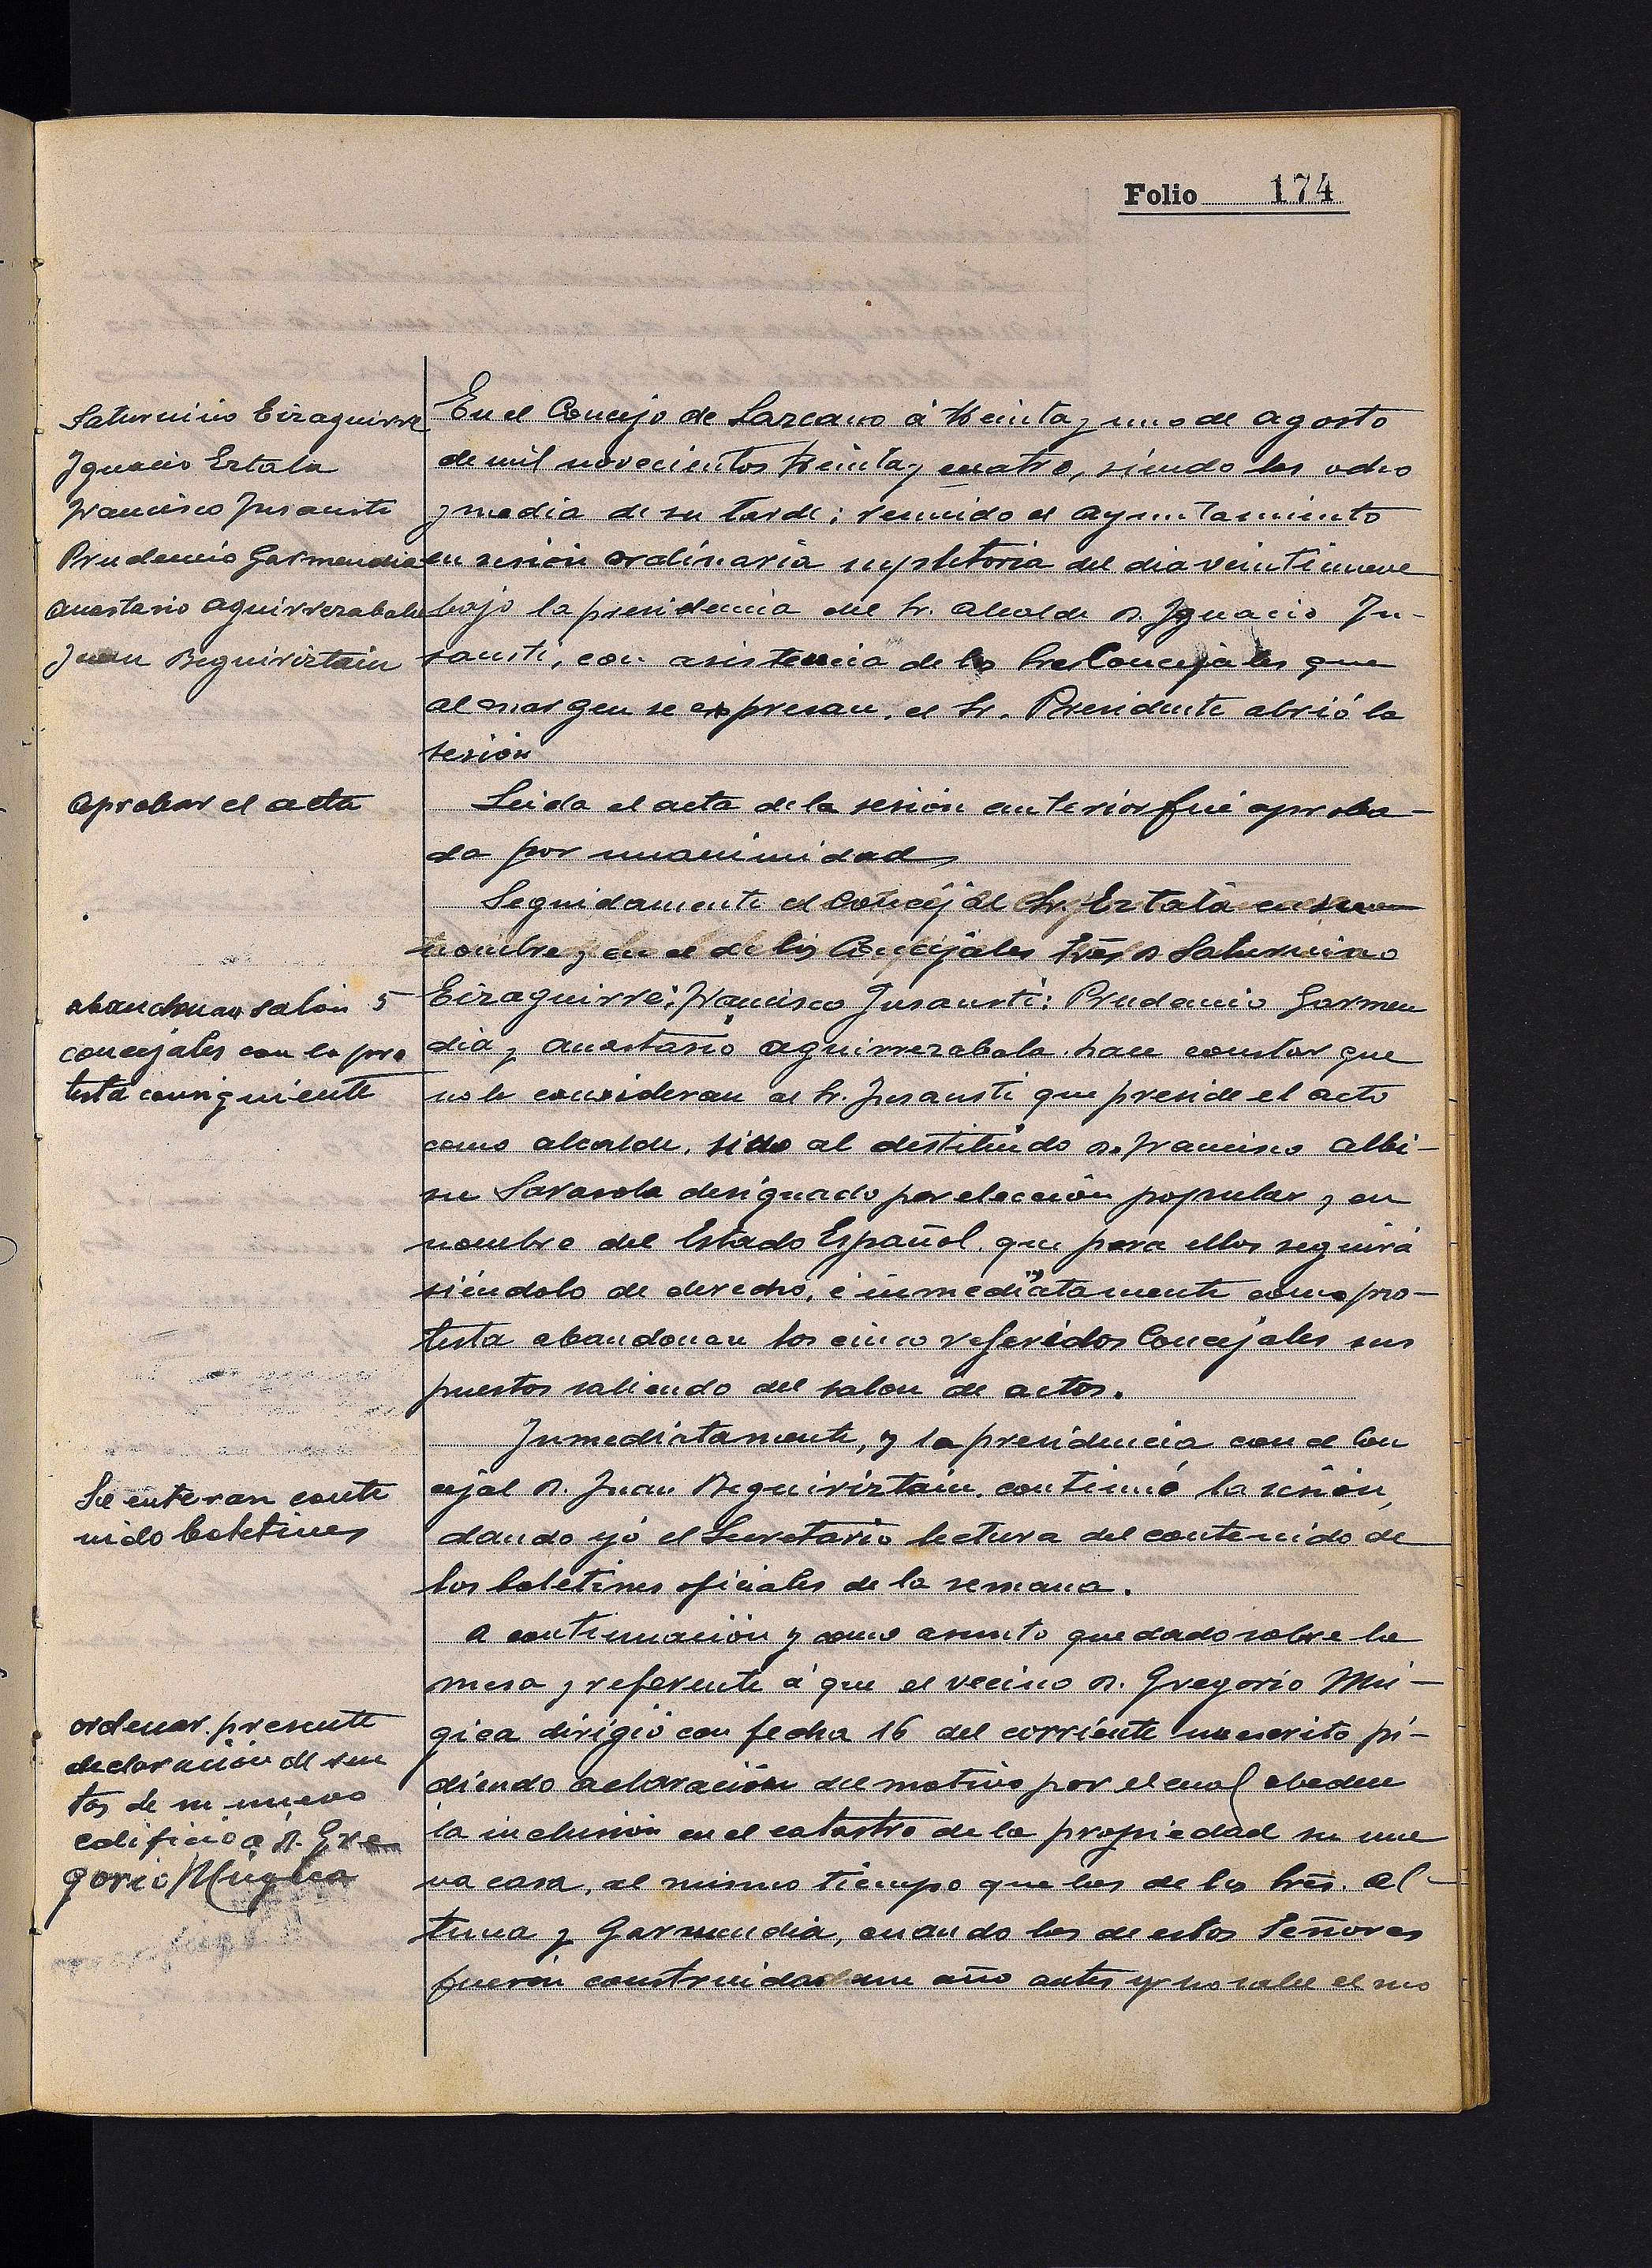 Folio 174
Saturnino Eizaguirre
Ignacio Eztala
Francisco Insausti
Prudencio Garmendia
Anastasio Aguirrezabala
Juan Beguiriztain
En el Concejo de Lazcano á treinta y uno de Agosto
de mil novecientos treinta y cuatro, siendo las ocho
y media de su tarde: reunido el Ayuntamiento
en sesión ordinaria supletoria del dia veintinueve
bajo la presidencia del Sr. Alcalde D. Ignacio In-
sausti, con asistencia de los Sres Concejales que
al margen se expresan, el Sr. Presidente abrió la
sesión
Aprobar el acta
Leida el acta de la sesión anterior fué aproba-
da por unanimidad
abandonan salón 5
concejales con la pro
testa consiguiente
Seguidamente el Concejal Sr. Eztala en su
nombre y en el de los Concejales Sres D Saturnino
Eizaguirre: Francisco Insausti: Prudencio Garmen
dia y Anastasio Aguirrezabala hace constar que
no le consideran al Sr. Insausti que preside el acto
como alcalde, sino al destituido D. Francisco Albi-
su Sarasola designado por elección popular y en
nombre del Estado Español que para ellos seguirá
siéndolo de derecho, é inmediatamente como pro-
testa abandonan los cinco referidos Concejales sus
puestos saliendo del salon de actos.
Se enteran conte
nido boletines
Inmediatamente, y la presidencia con el Con
cejal D. Juan Beguiriztain, continuó la sesión,
dando yo el Secretario lectura del contenido de
los boletines oficiales de la semana.
ordenar presente
declaración de ren
tas de su nuevo
edificio a D. Gre
gorio Múgica
A continuación y como asunto quedado sobre la
mesa y referente á que el vecino D. Gregorio Mú-
gica dirigió con fecha 16 del corriente un escrito pi-
diendo aclaración del motivo por el cual obedece
la inclusión en el catastro de la propiedad su nue
va casa, al mismo tiempo que las de los Sres. Al-
tuna y Garmendia, cuando las de estos Señores
fueron construidas un año antes y no sabe el mo